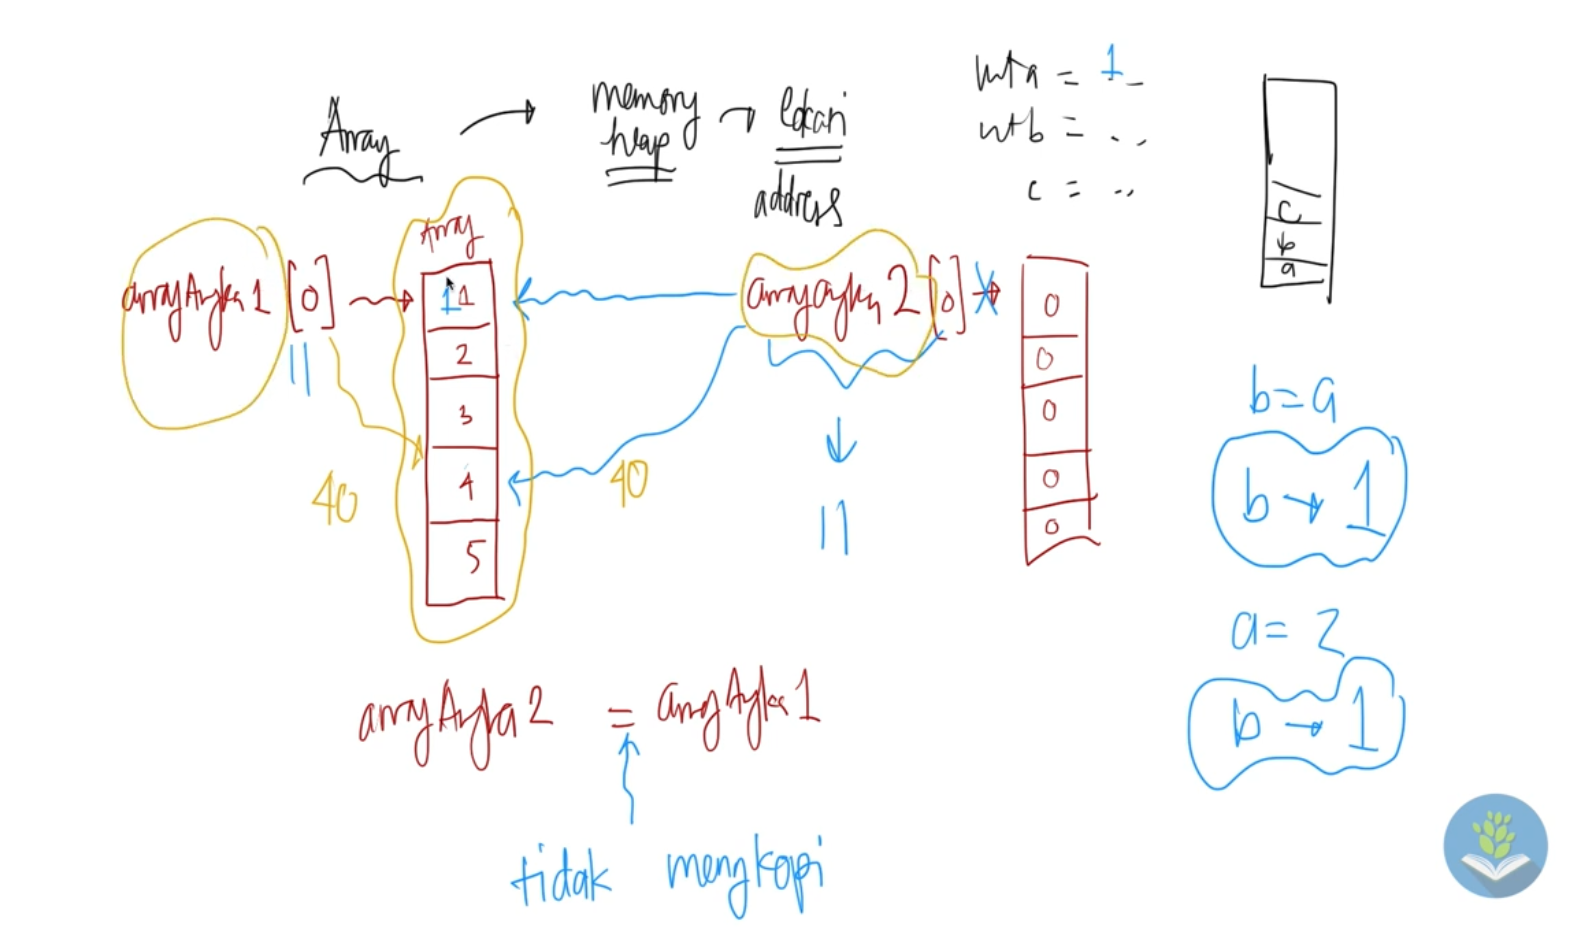 Array → memory heap → lokasi address
int a = 1
int b = ..
c = ..
c
b
a
Array
arrayAngka1 [0] →
11
1 1
2
3
4
5
40
arrayangka2 [0]
40
↓
11
0
0
0
0
0
b = a
b → 1
a = 2
b → 1
arrayAngka2 = arrayAngka1
tidak mengkopi